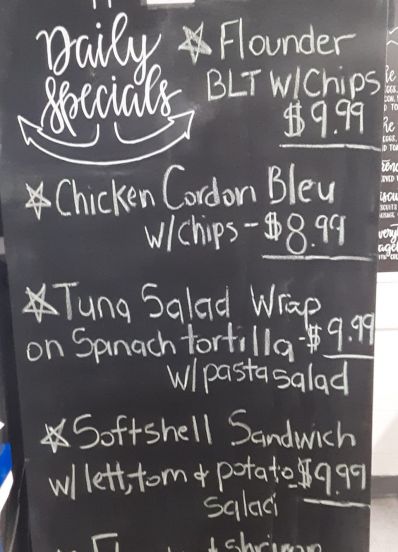 Daily
Specials
☆ Flounder
BLT w/Chips
$9.99
☆ Chicken Cordon Bleu
w/chips - $8.99
☆ Tuna Salad Wrap
on Spinach tortilla - $9.99
w/pasta salad
☆ Softshell Sandwich
w/ lett, tom & potato $9.99
salad
shrimp